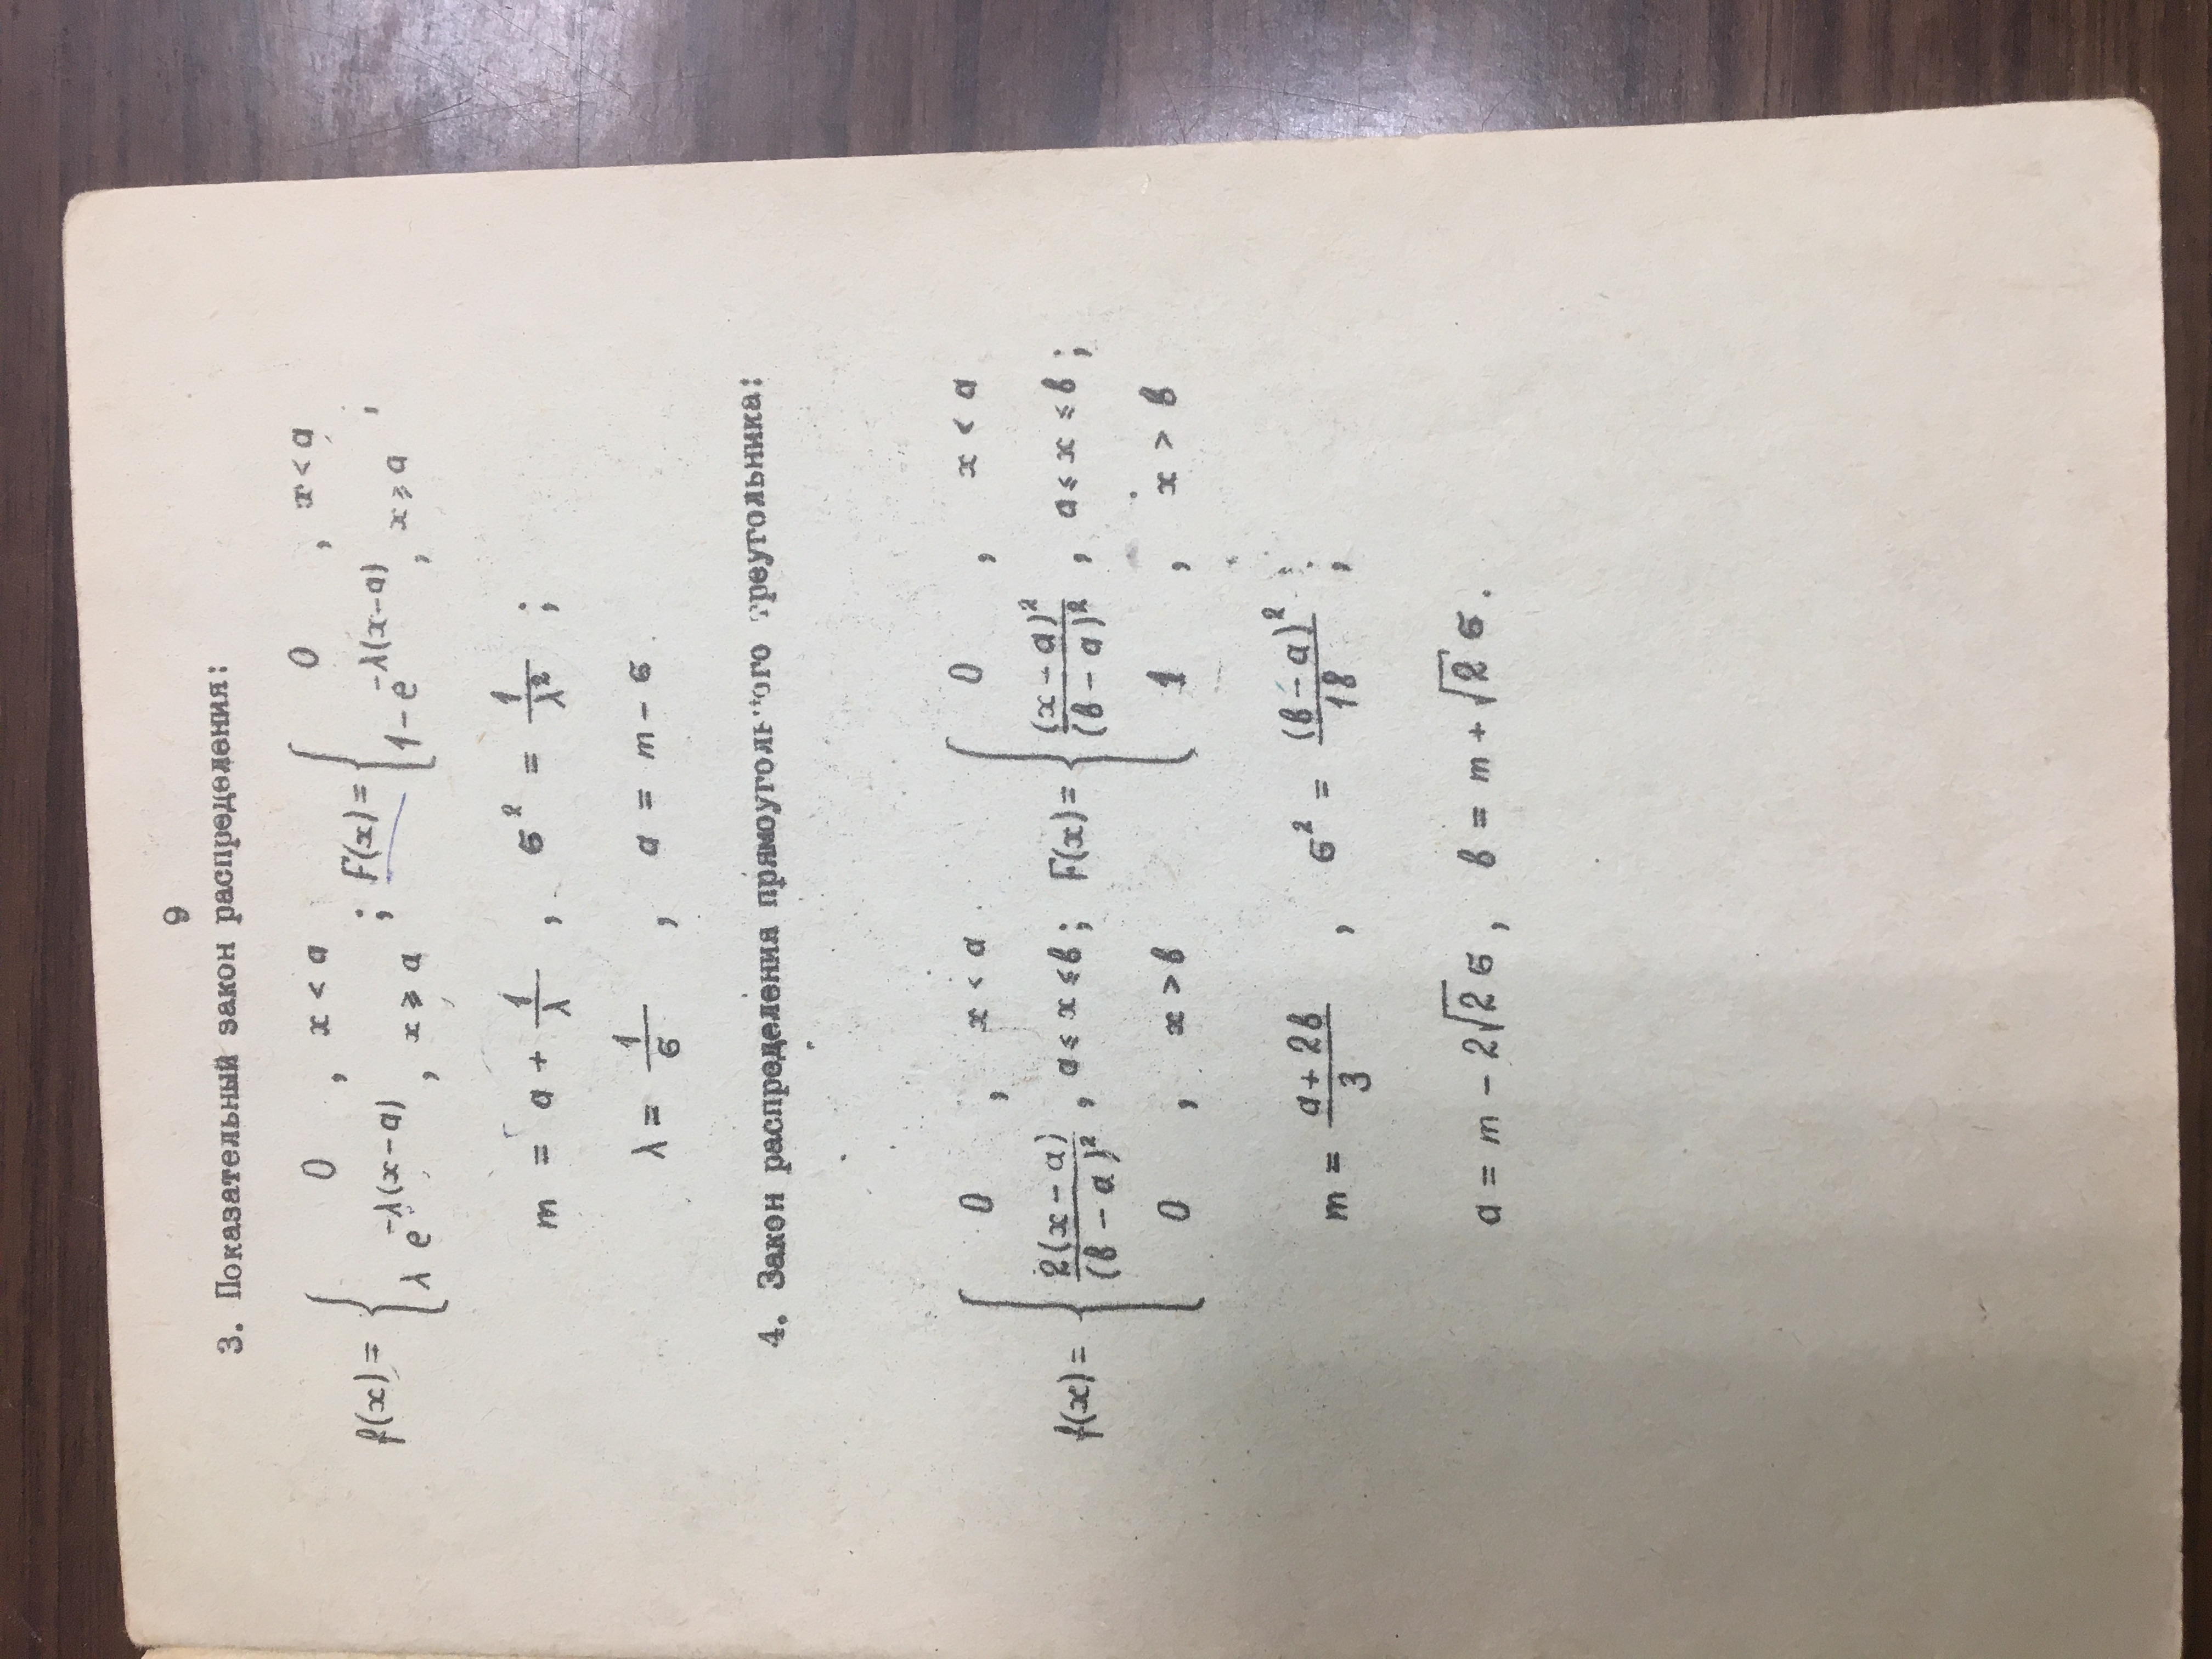 9
3. Показательный закон распределения:
f(x) = { 0 , x < a ; λ e^{-λ(x-a)} , x ⩾ a ; F(x) = { 0 , x < a ; 1 - e^{-λ(x-a)} , x ⩾ a ;
m = a + 1/λ , σ² = 1/λ² ;
λ = 1/σ , a = m - σ .
4. Закон распределения прямоугольного треугольника:
f(x) = { 0 , x < a ; 2(x - a)/(в - a)² , a ⩽ x ⩽ в ; 0 , x > в ; F(x) = { 0 , x < a ; (x - a)²/(в - a)² , a ⩽ x ⩽ в ; 1 , x > в
m = (a + 2в)/3 , σ² = (в - a)²/18 ;
a = m - 2√2 σ , в = m + √2 σ .